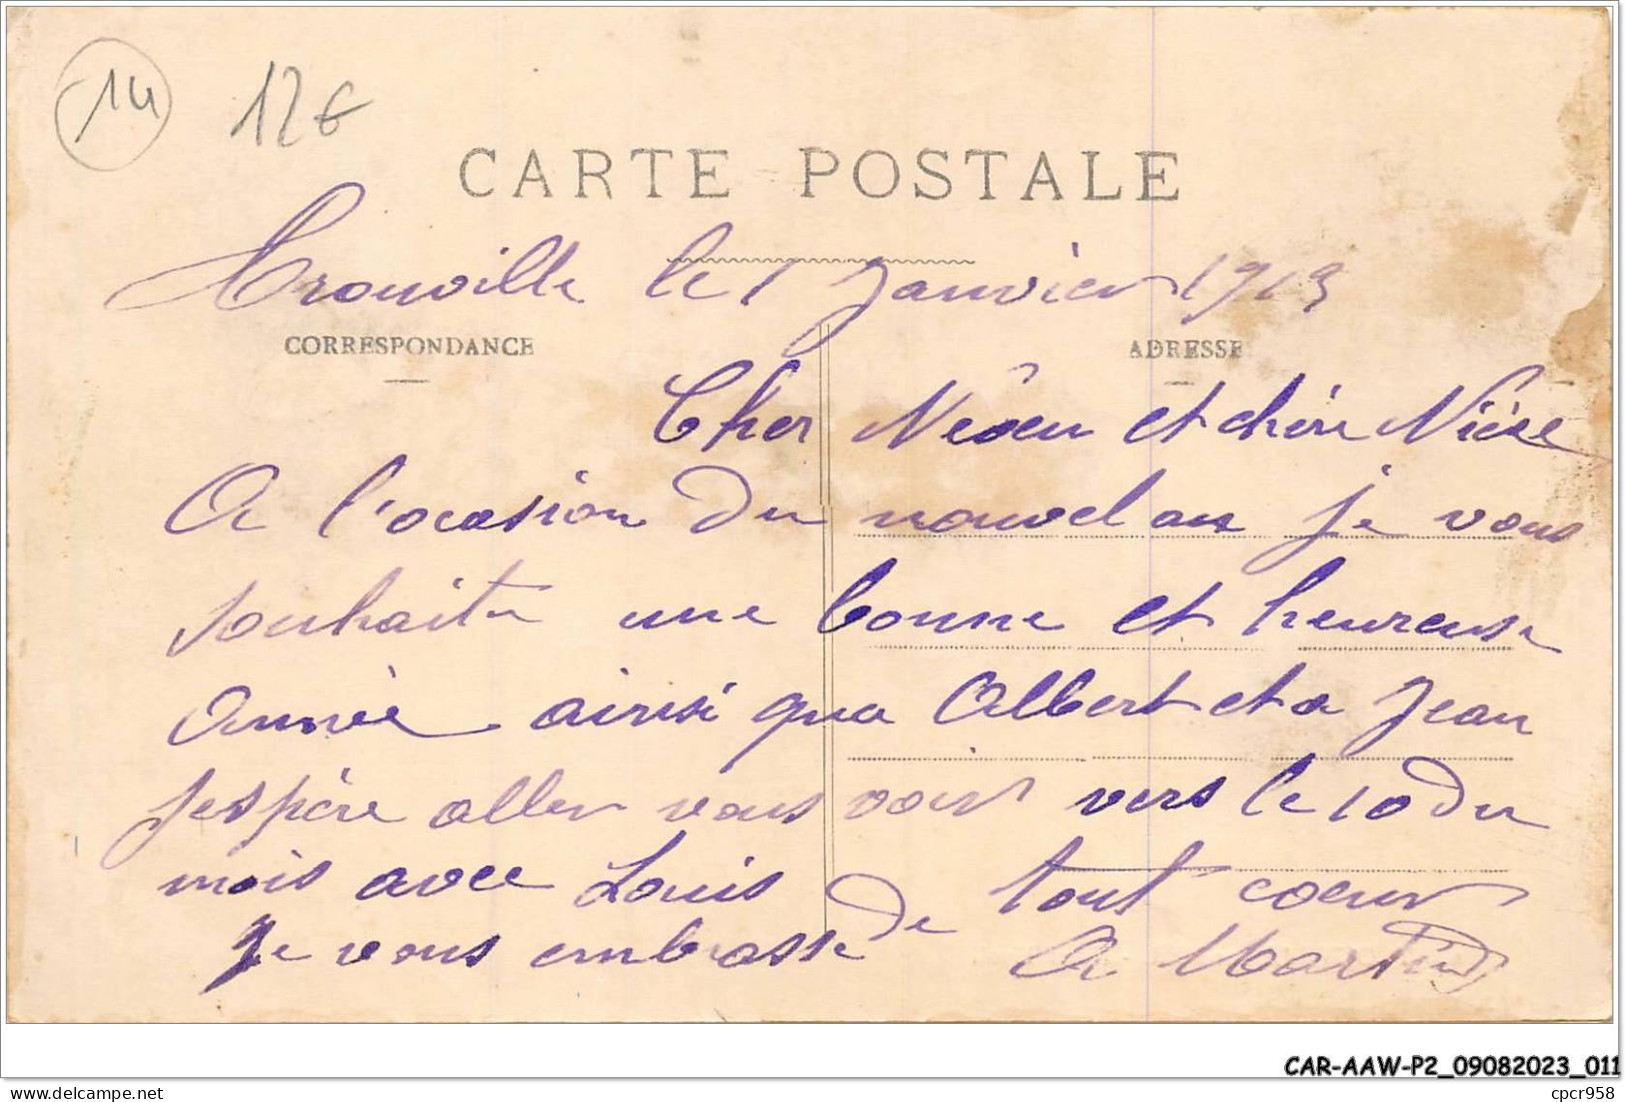 14
12€
CARTE POSTALE
Trouville le 1 Janvier 1913
CORRESPONDANCE
ADRESSE
Cher Neveu et chère Nièce
A l'ocasion du nouvel an je vous
souhaite une bonne et heureuse
Année ainsi qua Albert et a Jean
Jespère aller vous voir vers le 10 du
mois avec Louis
Je vous embrasse de tout coeur
A Martin
CAR-AAW-P2_09082023_011
delcampe.net
cpcr958